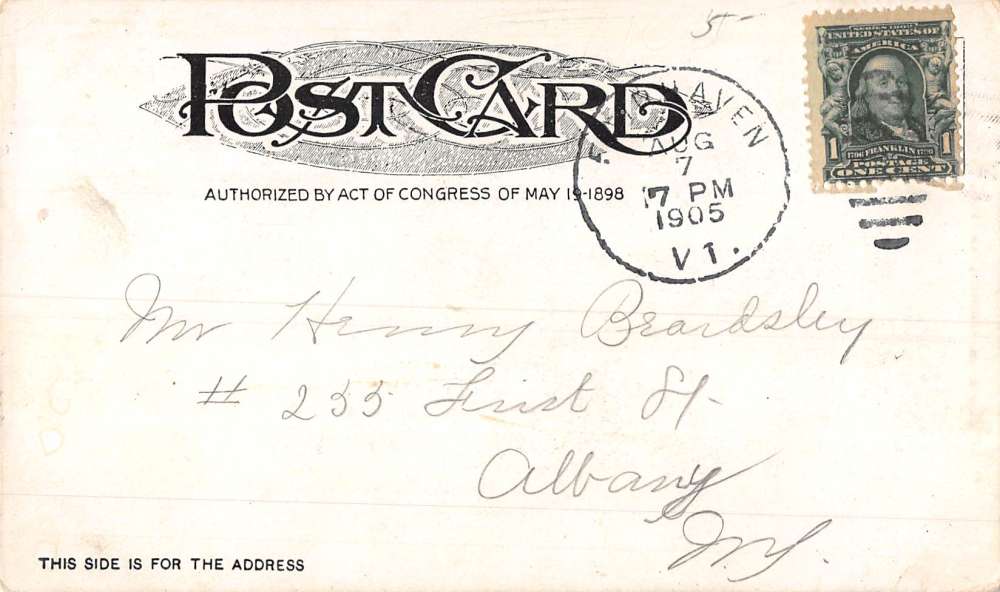 5-
POST CARD
AUTHORIZED BY ACT OF CONGRESS OF MAY 19-1898
HAVEN
AUG
7
7 PM
1905
VT.
SERIES 1902
UNITED STATES OF
AMERICA
1 1706 FRANKLIN 1790 1
POSTAGE
ONE CENT
Mr Henry Beardsley
# 255 First St.
Albany
N.Y.
THIS SIDE IS FOR THE ADDRESS